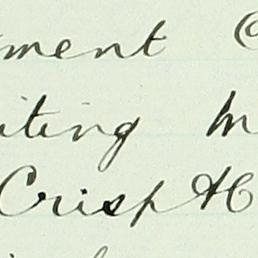 ment
iting M
Crisp HC